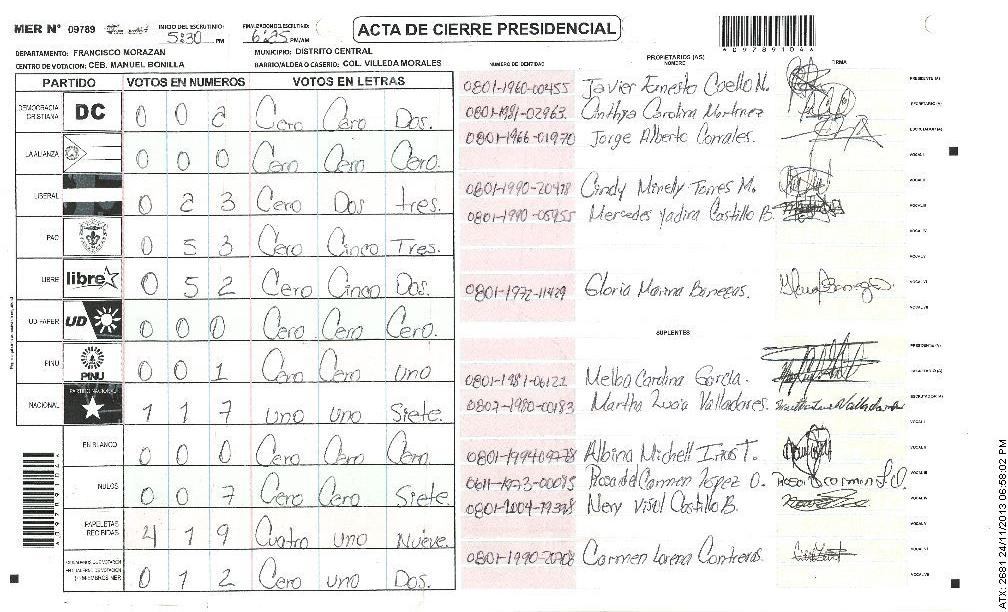 MER N° 09789 INICIO DEL ESCRUTINIO: 5:30 PM FINALIZACION ESCRUTINIO: 6:25 PM/AM ACTA DE CIERRE PRESIDENCIAL
DEPARTAMENTO: FRANCISCO MORAZAN MUNICIPIO: DISTRITO CENTRAL
CENTRO DE VOTACION: CEB. MANUEL BONILLA BARRIO/ALDEA O CASERIO: COL. VILLEDA MORALES
PARTIDO VOTOS EN NUMEROS VOTOS EN LETRAS
DEMOCRACIA CRISTIANA DC 0 0 2 Cero Cero Dos.
LA ALIANZA 0 0 0 Cero Cero Cero.
LIBERAL 0 2 3 Cero Dos tres.
PAC 0 5 3 Cero Cinco Tres.
LIBRE libre 0 5 2 Cero Cinco Dos.
UD FAPER UD 0 0 0 Cero Cero Cero.
PINU PINU 0 0 1 Cero Cero uno
NACIONAL PARTIDO NACIONAL 1 1 7 uno uno Siete.
EN BLANCO 0 0 0 Cero Cero Cero
NULOS 0 0 7 Cero Cero Siete
PAPELETAS RECIBIDAS 4 1 9 Cuatro uno Nueve.
0 1 2 Cero uno Dos.
NUMERO DE IDENTIDAD PROPIETARIOS (AS) NOMBRE FIRMA
0801-1960-00455 Javier Ernesto Coello M. PRESIDENTE (A)
0801-1981-02963. Cinthya Carolina Martinez SECRETARIO (A)
0801-1966-01970 Jorge Alberto Corrales. ESCRUTADOR (A)
VOCAL I
0801-1990-20478 Cindy Minely Torres M. VOCAL II
0801-1990-05955 Mercedes Yadira Castillo B. VOCAL III
VOCAL IV
VOCAL V
0801-1972-11429 Gloria Marina Banegas. VOCAL VI
VOCAL VII
SUPLENTES
PRESIDENTE (A)
0801-1981-06121 Melba Carolina Garcia. SECRETARIO (A)
0802-1980-00183 Martha Lucia Valladares. ESCRUTADOR (A)
VOCAL I
Albina Michell T. VOCAL II
0611-1973-00095 Rosa del Carmen Lopez O. VOCAL III
Nery Castillo B. VOCAL IV
VOCAL V
0801-1990-20708 Carmen Lorena Contreras. VOCAL VI
VOCAL VII
4097891046
ATX: 2681 24/11/2013 06:58:02 PM